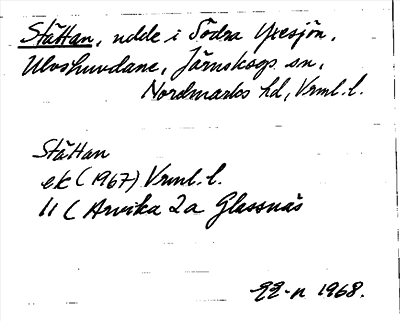 Stättan, udde i Södra Yxesjön,
Ulvshuvdane, Järnskogs sn,
Nordmarks hd, Vrml. l.
Stättan
ek (1967) Vrml. l.
11 C Arvika 2a Glassnäs
1968.